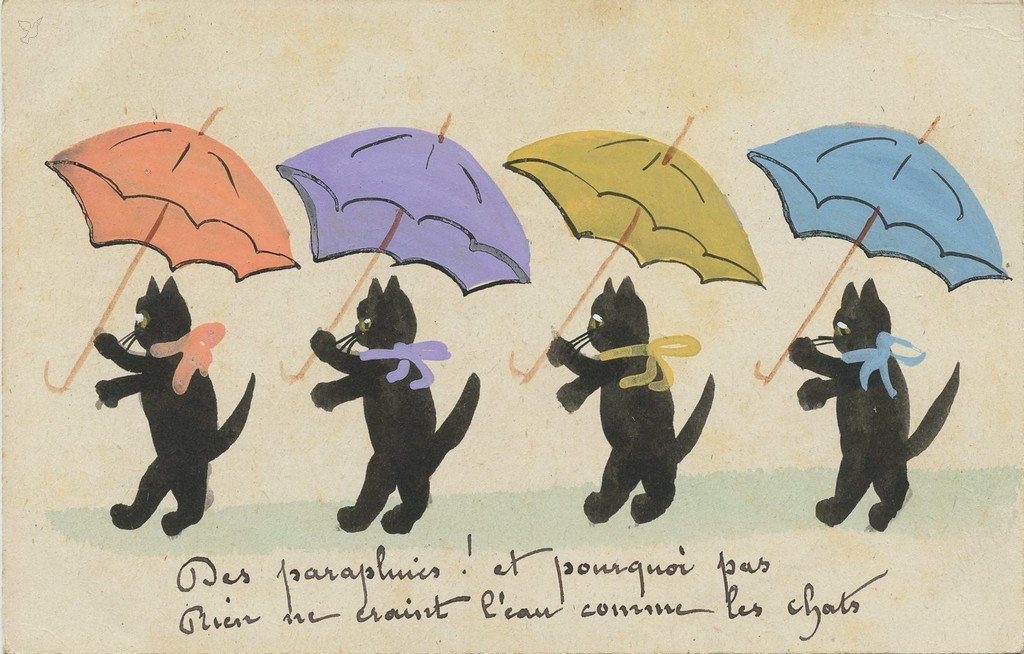 Des parapluies ! et pourquoi pas
Rien ne craint l'eau comme les chats